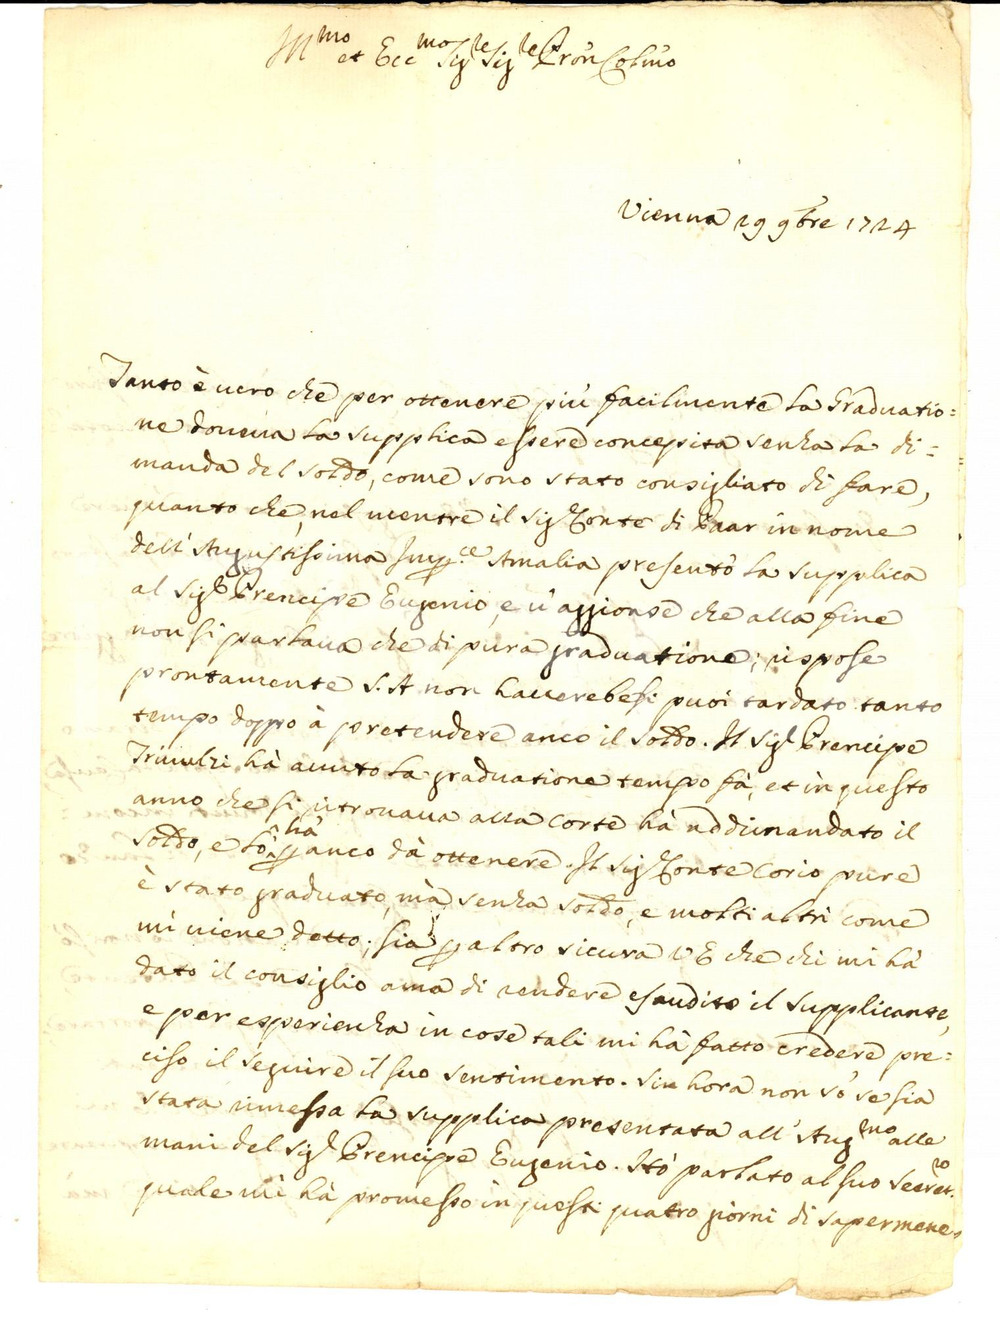 Ill.mo et Ecc.mo Sig.re Sig.re Pron Col.mo
Vienna 29 9bre 1724
Tanto è uero che per ottenere più facilmente la Graduatio=
ne doueua la supplica essere concepita senza la di=
manda del soldo, come sono stato consigliato di fare,
quanto che, nel mentre il Sig. Conte di Paar in nome
dell'Augustissima Imp.ce Amalia presentò la supplica
al Sig.r Prencipe Eugenio, e u'aggionse che alla fine
non si parlaua che di pura graduatione; rispose
prontamente S.A non hauerebesi puoi tardato tanto
tempo doppo à pretendere anco il soldo. Il Sig.r Prencipe
Triuulzi hà auuto la graduatione tempo fà, et in questo
anno che si ritrouaua alla Corte hà addimandato il
soldo, e lo hà p anco dà ottenere. Il Sig. Conte Corio pure
è stato graduato, mà senza soldo, e molti altri come
mi uiene detto; sia p altro sicura VE che chi mi hà
dato il consiglio ama di rendere esaudito il supplicante,
e per esperienza in cose tali mi hà fatto credere pre=
ciso il seguire il suo sentimento. Sin hora non sò se sia
stata rimessa la supplica presentata all'Aug.mo alle
mani del Sig.r Prencipe Eugenio. Hò parlato al suo Secret.ro
quale mi hà promesso in questi quatro giorni di sapermene